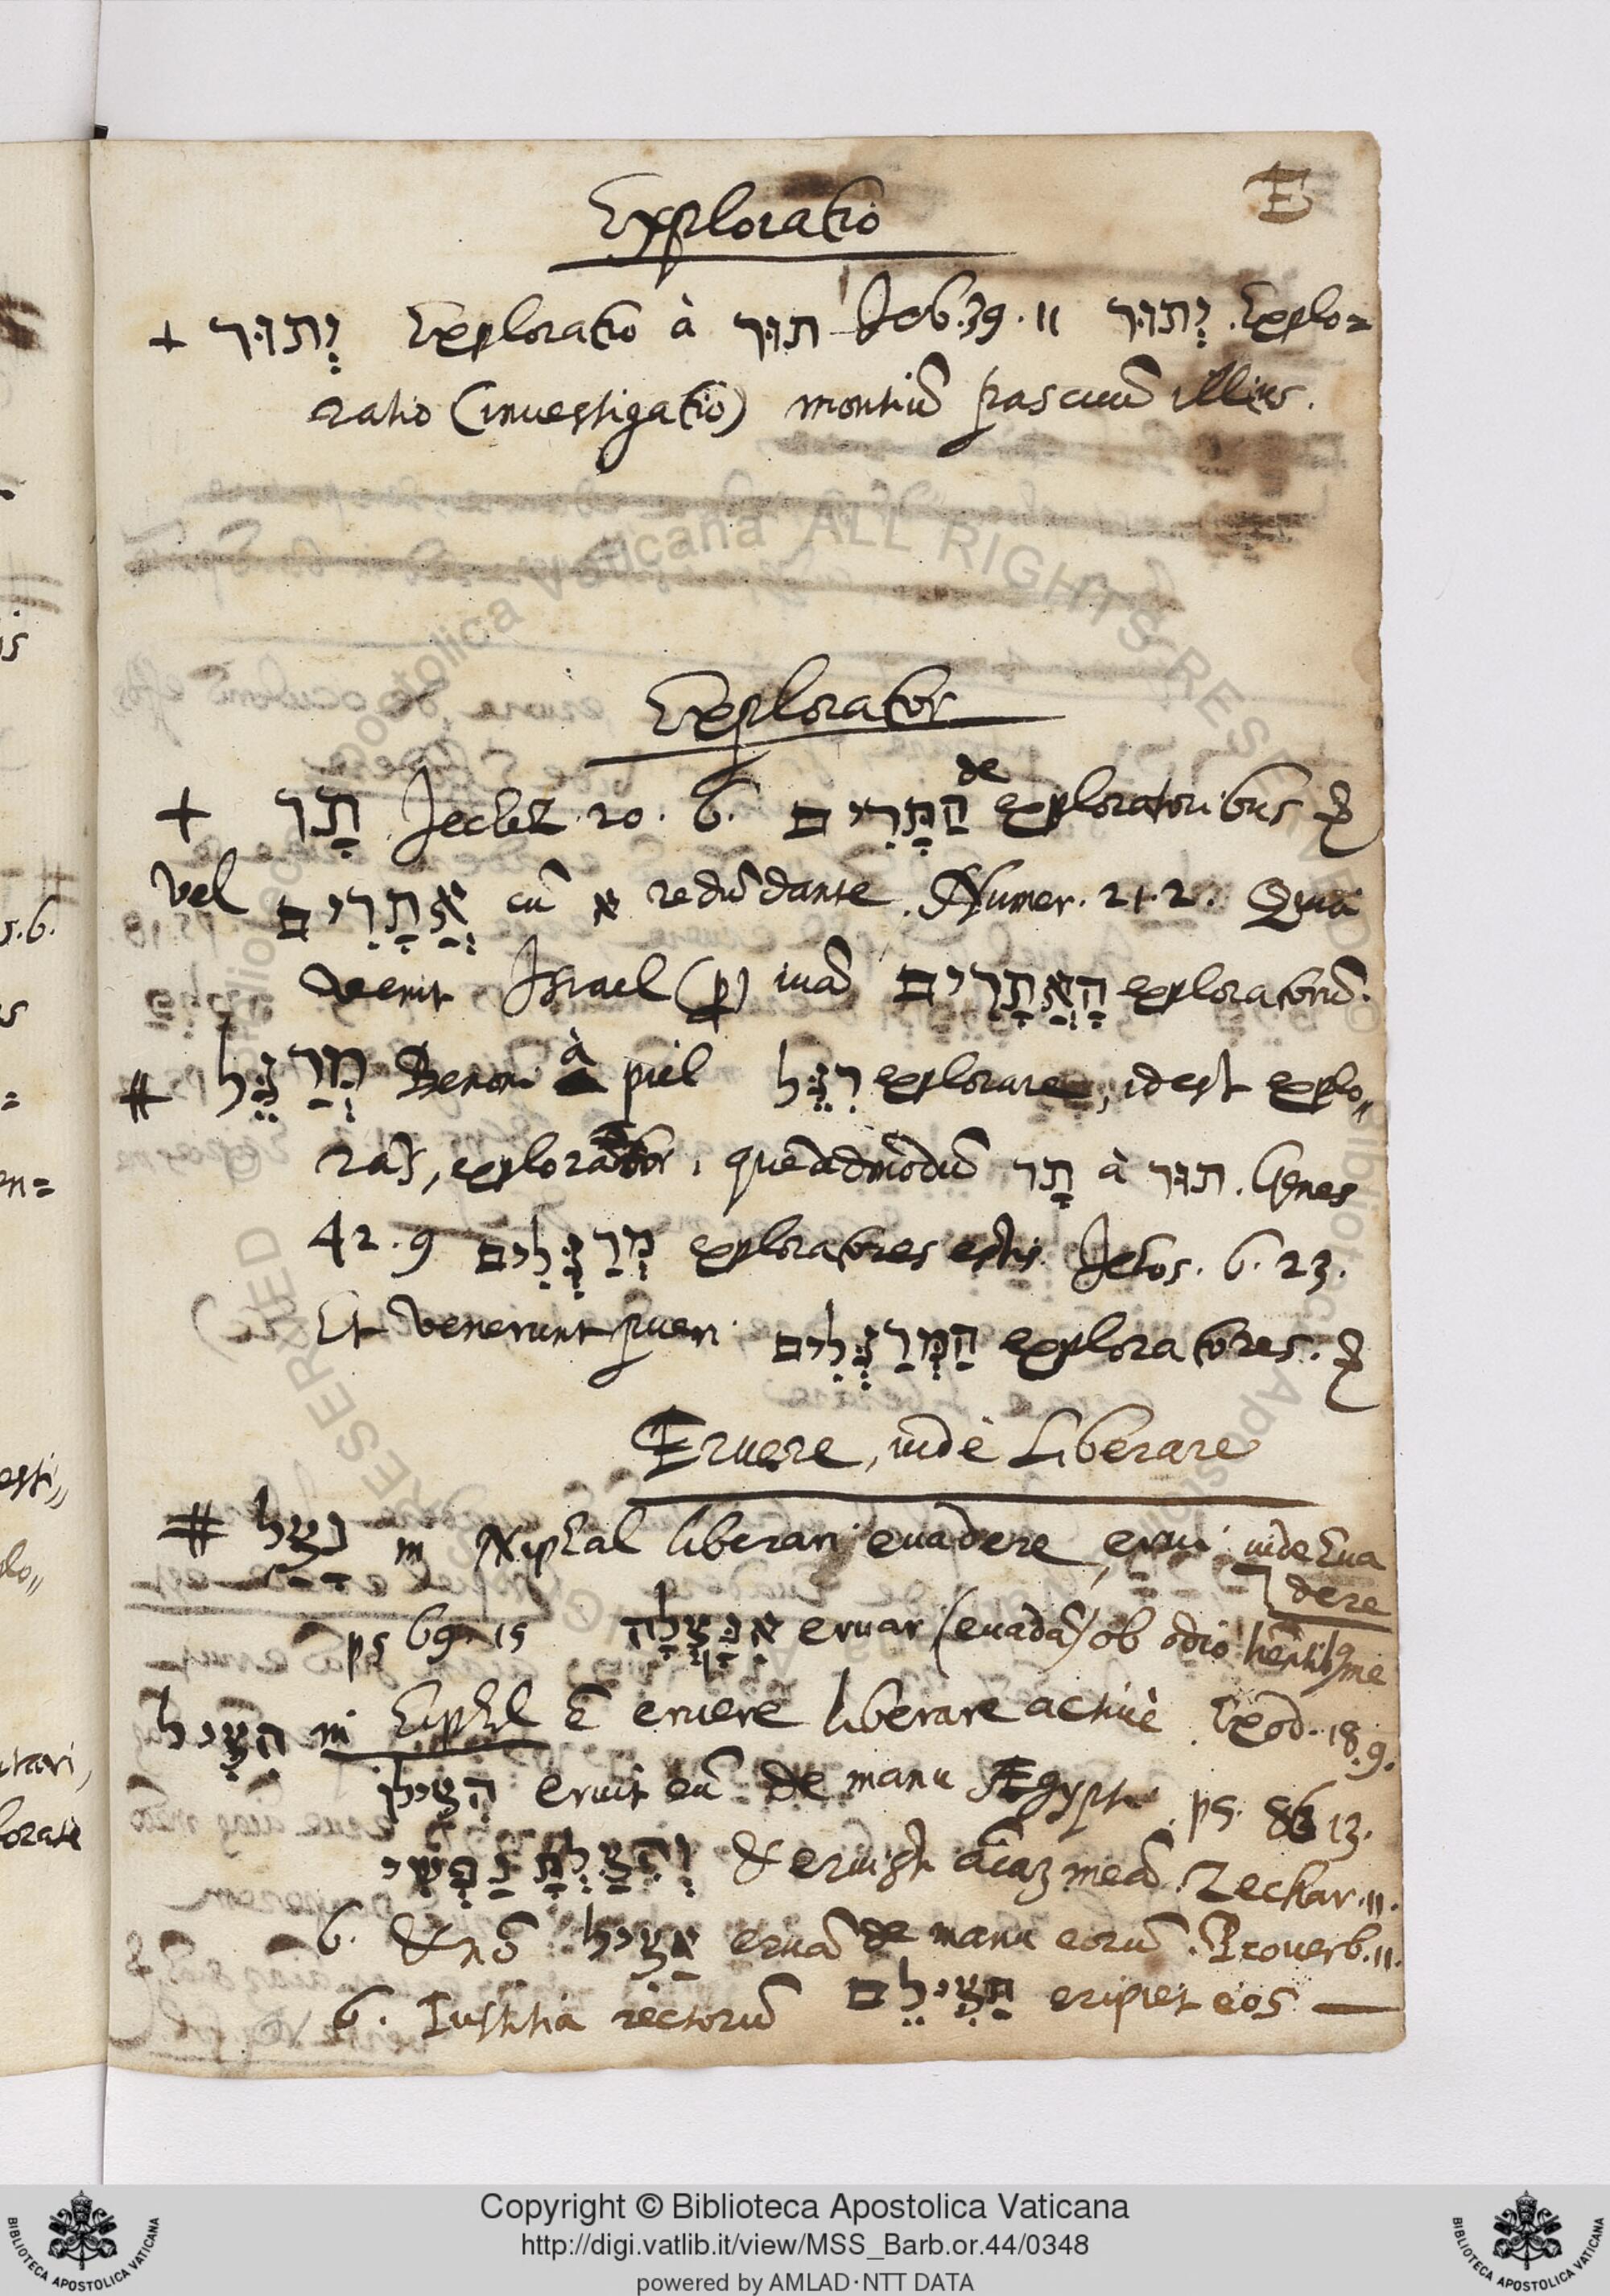 E
Exploratio
+ יְתוּר Exploratio à תוּר Job. 39. 11 יְתוּר . Explo=
ratio (inuestigatio) montiũ pascuũ illius.
Explorator
de
+ תָר Jechez. 20. 6. הַתָרִים exploratoribus
vel אֲתָרִים cũ א redũdante. Numer. 21. 2. Quia
venit Israel uiã הָאֲתָרִים exploratorũ.
# מְרַגֵּל Benoni à piel רִגֵּל explorare, idest explo„
rãs, explorator, quẽadmodũ תָר à תוּר . Genes
42. 9 מְרַגְּלִים exploratores estis Jehos. 6. 23.
Et venerunt pueri הַמְּרַגְּלִים exploratores.
Eruere, indè Liberare
# נִצַּל in Niphal liberari euadere, erui inde Eua
dere
ps 69. 15 אִנָּצְלָה eruar (euadã) ob odio me
הִצִּיל in Hiphil ẽ eruere liberare actiuè Exod. 18. 9.
הִצִּילוֹ eruit eũ de manu Ægypti. ps. 86 13.
וְהִצַּלְתָּ נַפְשִׁי & eruisti aĩaz meã. Zechar. 11.
6. & nõ אַצִּיל eruã de manu eorũ. Prouerb. 11.
6. Iustitia rectorũ תַּצִּילֵם eripiet eos —
Copyright © Biblioteca Apostolica Vaticana
http://digi.vatlib.it/view/MSS_Barb.or.44/0348
powered by AMLAD·NTT DATA
BIBLIOTECA APOSTOLICA VATICANA
BIBLIOTECA APOSTOLICA VATICANA